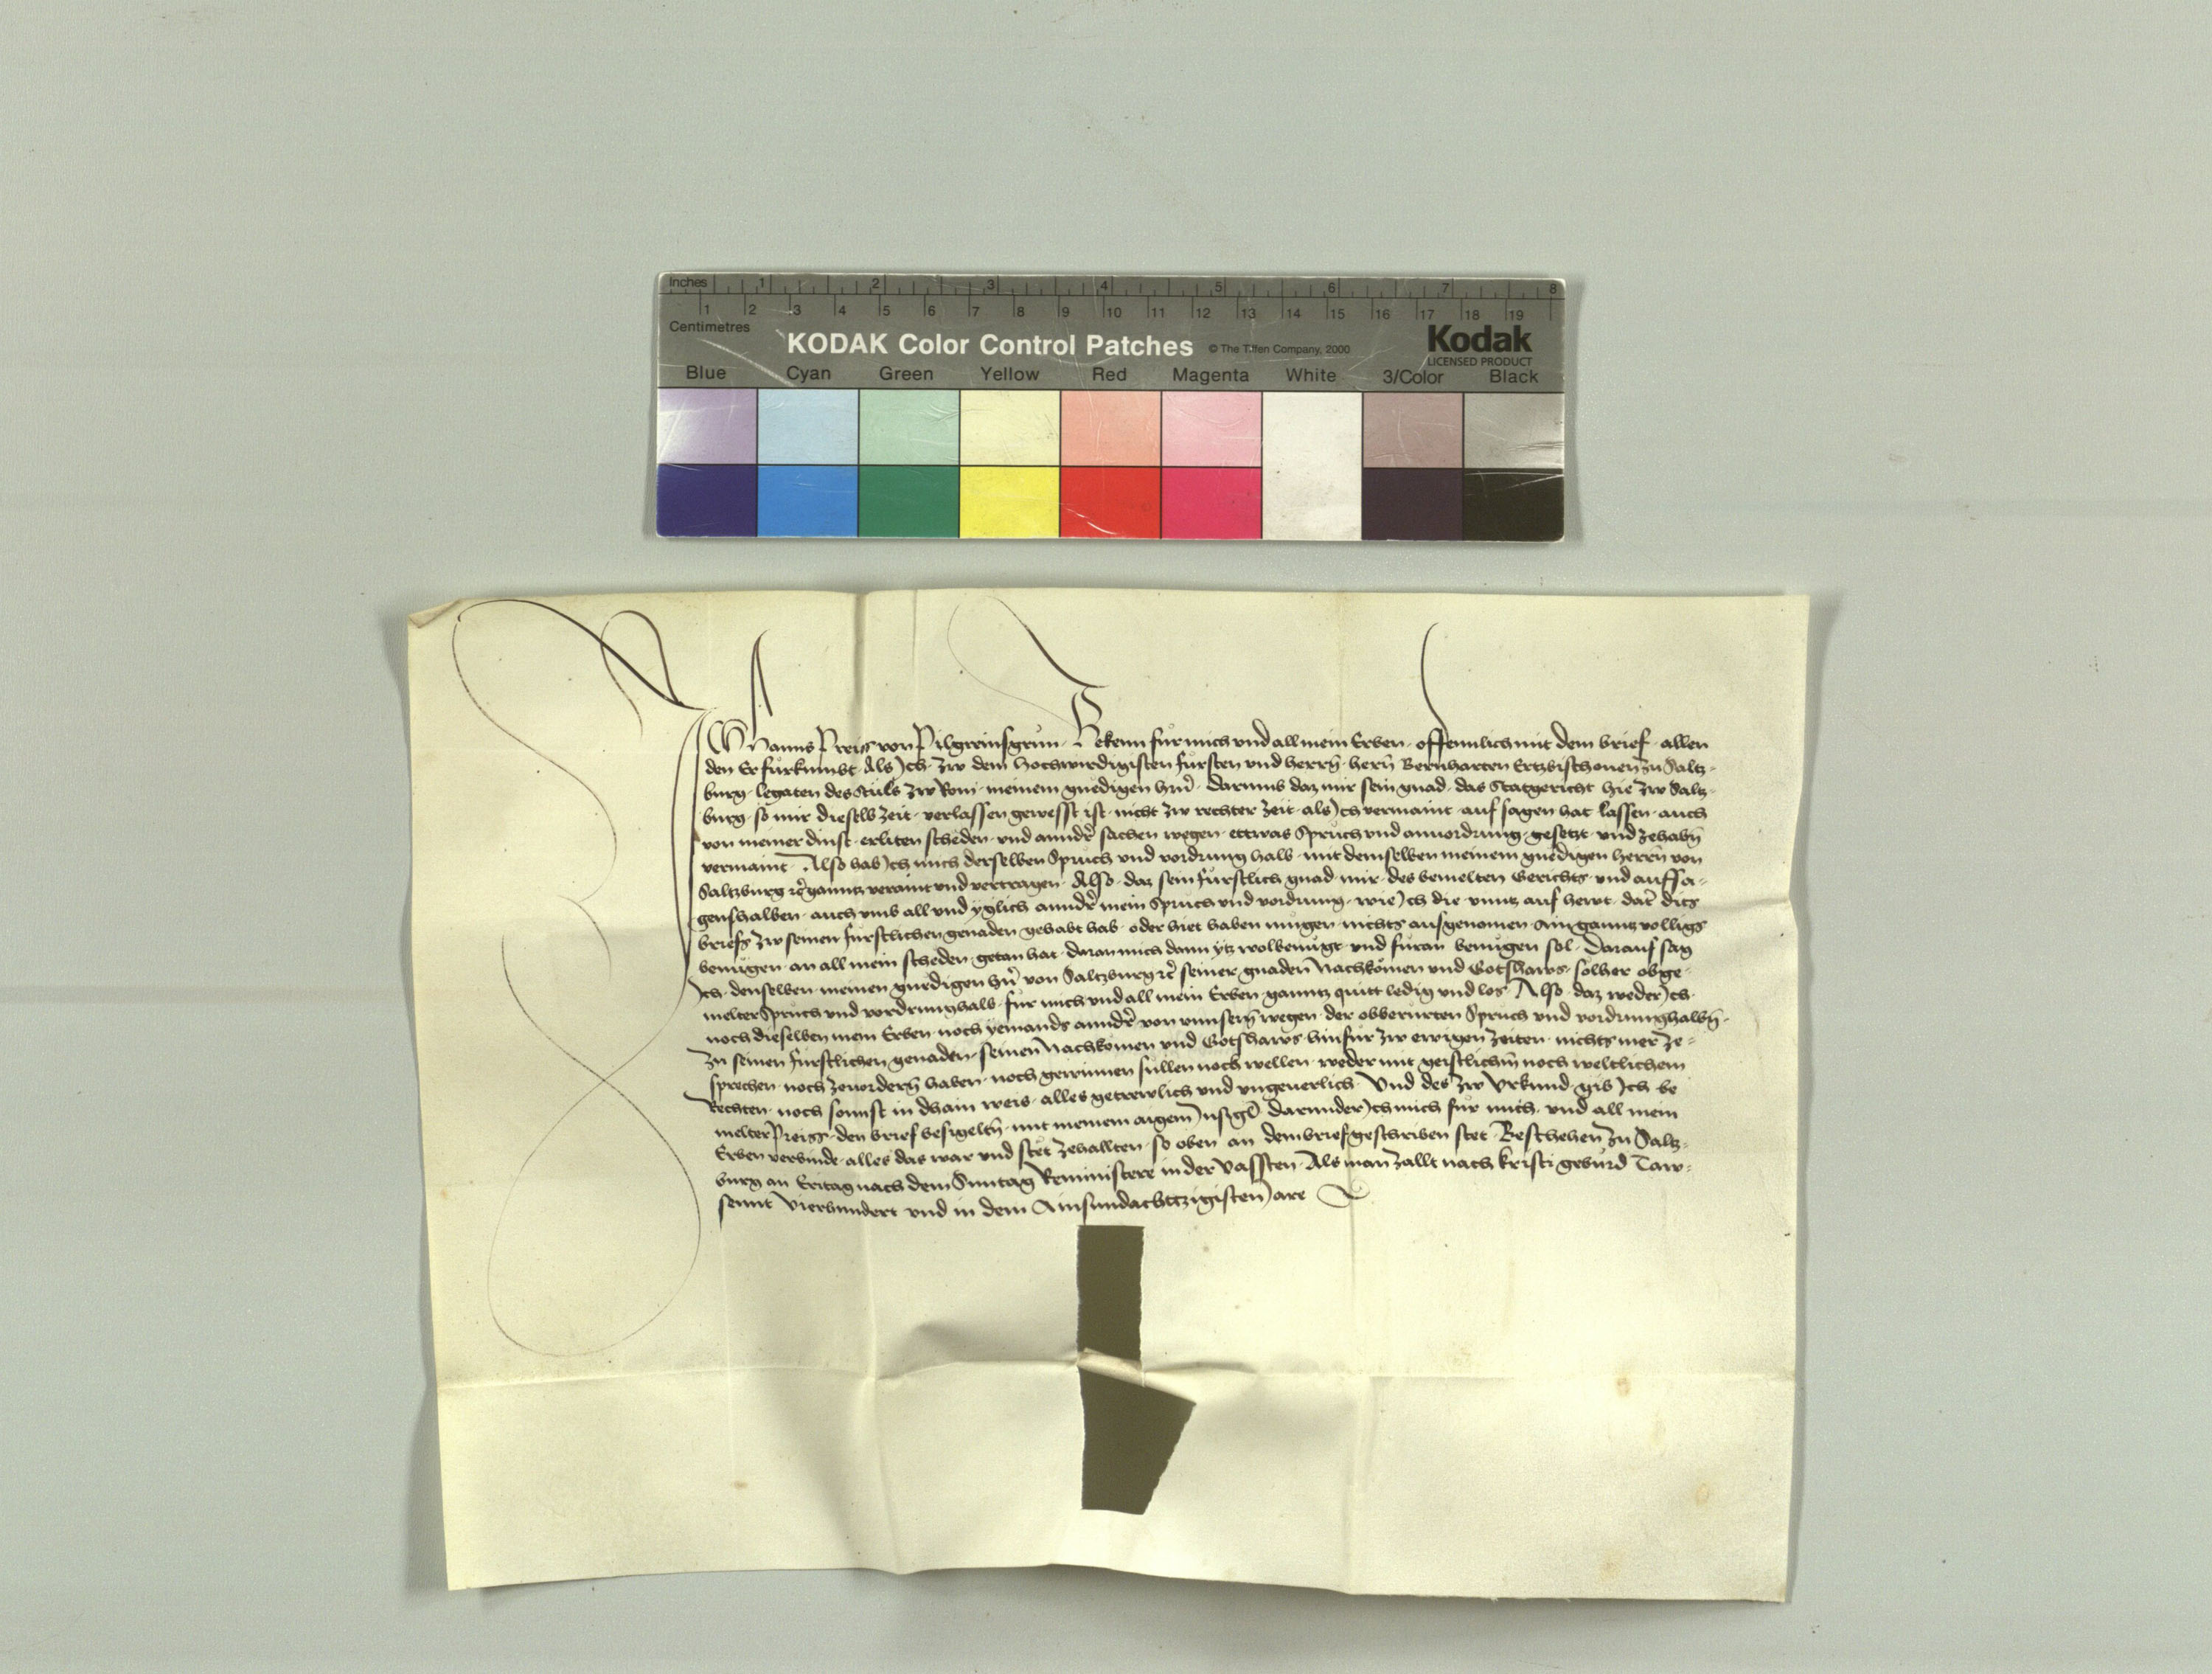 Inches 1 2 3 4 5 6 7 8
1 2 3 4 5 6 7 8 9 10 11 12 13 14 15 16 17 18 19
Centimetres
KODAK Color Control Patches © The Tiffen Company, 2000 Kodak
LICENSED PRODUCT
Blue Cyan Green Yellow Red Magenta White 3/Color Black
Ich Hanns Preiss von Pilgreinsgrun · Bekenn für mich vnd all mein Erben · offennlich mit dem brief · allen
den Er fürkumbt · Als Ich · zw dem hochwirdigisten fürsten vnd herrn̄ · hern̄ Bernharten Ertzbischouen zu Saltz-
burg · legaten des Stuls zw Rom · meinem gnedigen hrn̄ · darumb daz mir sein gnad · das Statgericht hie zw Saltz-
burg · so mir dieselb zeit · verlassen gewesst ist · nicht zw rechter zeit · als Ich vermaint · auf sagen hat lassen · auch
von meiner dinst · erliten scheden · vnd annder sachen wegen · ettwas Spruch vnd anuordrung · gesetzt · vnd zehabn̄
vermaint · Also hab Ich mich derselben Spruch vnd vordrung halb · mit demselben meinem gnedigen herrn̄ von
Saltzburg ꝛc̄ ganntz veraint vnd vertragen · Also · daz sein fürstlich gnad · mir · des bemelten Gerichts · vnd auffsa-
genshalben · auch vmb all vnd yglich annder mein Spruch vnd vordrung · wie Ich die vnntz auf hewt · dat̄ dits
briefs zw seinen fürstlichen genaden gehabt hab · oder hiet haben mügen · nichts ausgenomen · Ain ganntz volligs
benügen · an all mein scheden · getan hat · daran mich dann ytz wolbenügt · vnd füran benügen sol · Darauf sag
Ich · denselben · meinen gnedigen hn̄ von Saltzburg ꝛc̄ seiner gnaden Nachkömen vnd Gotshaws · solher obge-
melter Spruch vnd vordrunghalb · für mich vnd all mein Erben · ganntz quitt ledig vnd los · Also · daz weder Ich ·
noch dieselben mein Erben · noch yemands annder von vnnsern̄ wegen · der obberurten Spruch vnd vordrunghalbn̄ -
zu seinen fürstlichen genaden · seinen Nachkomen vnd Gotshaws · hinfür zw ewigen zeiten · nichts mer ze-
sprechen · noch zeuordern̄ haben · noch gewinnen süllen noch wellen · weder mit geistlichm̄ noch weltlichem
Rechten · noch sonnst in dhain weis · alles getrewlich vnd vngeuerlich · Vnd des zw Vrkund · gib Ich be
melter Preiss · den brief besigeltn̄ · mit meinem aigem Insigl̄ · darunder Ich mich für mich · vnd all mein
Erben verbinde · alles das war vnd stet zehallten · so oben an dem brief geschriben stet · Beschehen zu Saltz-
burg an Eritag nach dem Sunntag Reministere in der Vassten · Als man zallt nach kristi geburd Taw-
sennt Vierhundert vnd in dem Ainsundachttzigisten Jare